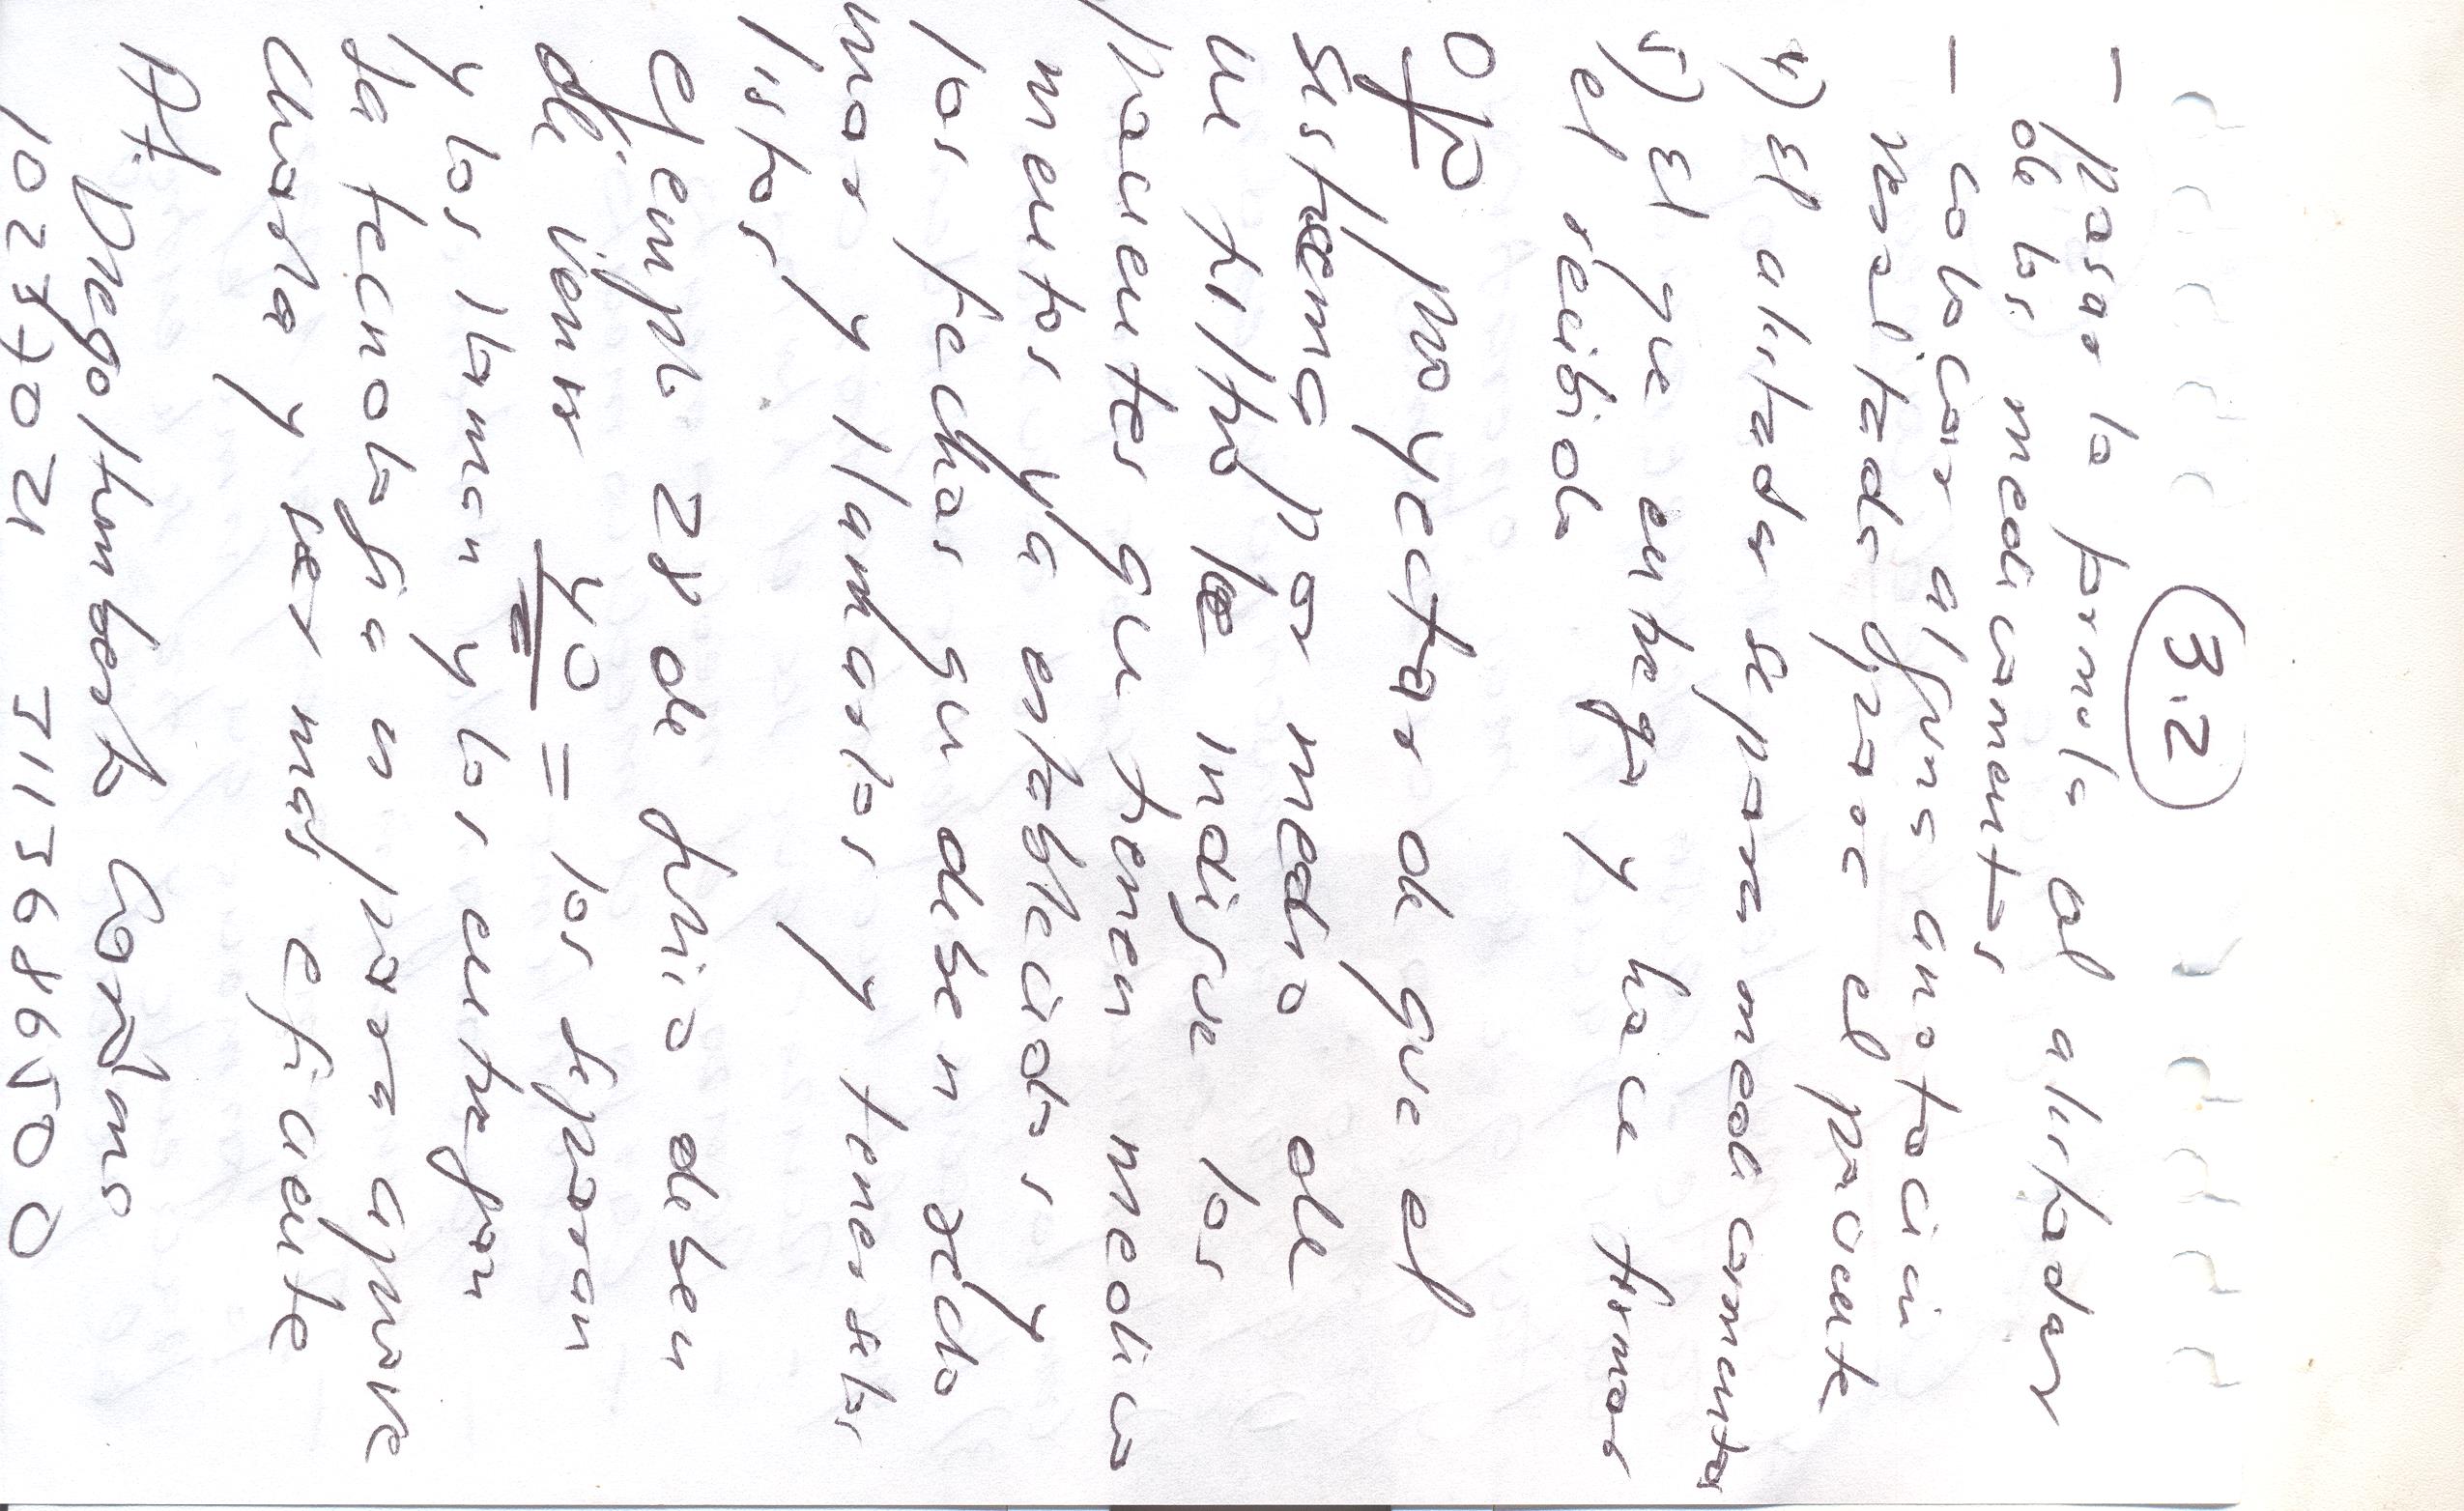 3.2
- pasar la formula al alistador
de los medicamentos
- colocar alguna anotacin
resaltado y para el paciente
4) El alistador separa medicamentos
5) El que entrega y hace firmar
el recibido
OJO proyectar de que el
sistema por medio de
un filtro le indique los
pacientes que tienen medica
mentos ya establecidos y
las fechas que deben reclo
mar y llamarlos y tenerlos
listos,
ejemplo 28 de junio deben
de venir 40 = los separan
y los llaman y los entregan
la tecnologia es para aprove
charla y ser mas eficiente
Att. Diego Humberto
1023702 3113686500